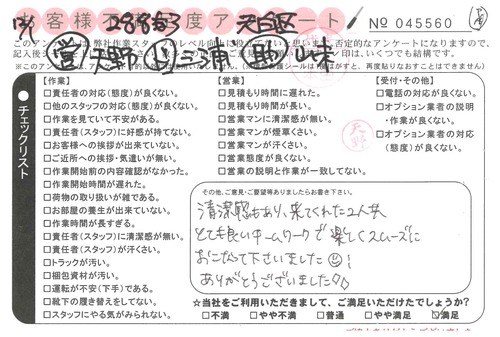 お客様不満足度アンケート
No 045560
288873 天白区
営 天野 作 三浦 助 山本
このアンケートは弊社作業スタッフのレベル向上に役立てたいと思います。否定的なアンケートになりますので、
※このアンケート
いくつでも結構です。
再度貼りなおすことはできません)
チェックリスト
【作業】
□責任者の対応(態度)が良くない。
□他のスタッフの対応(態度)が良くない。
□作業を見ていて不安がある。
□責任者(スタッフ)に好感が持てない。
□お客様への挨拶が出来ていない。
□ご近所への挨拶・気遣いが無い。
□作業開始前の内容確認がなかった。
□作業開始時間が遅れた。
□荷物の取り扱いが雑である。
□お部屋の養生が出来ていない。
□作業時間が長すぎる。
□責任者(スタッフ)に清潔感が無い。
□責任者(スタッフ)が汗くさい。
□トラックが汚い。
□梱包資材が汚い。
□運転が不安(下手)である。
□靴下の履き替えをしてない。
□スタッフにやる気がみられない。
【営業】
□見積もり時間に遅れた。
□見積もり時間が長い。
□営業マンに清潔感が無い。
□営業マンが煙草くさい。
□営業マンが汗くさい。
□営業態度が良くない。
□営業の説明と作業が一致してない。
【受付・その他】
□電話の対応が良くない。
□オプション業者の説明
・作業が良くない。
□オプション業者の対応
(態度)が良くない。
天野
その他、ご意見・ご要望等ありましたらお書き下さい。
清潔感もあり、来てくれた2人共
とても良いチームワークで楽しくスムーズに
おこなって下さいました
ありがとうございました
☆当社をご利用いただきまして、ご満足いただけたでしょうか?
□不満 □やや不満 □普通 □やや満足 ☑満足